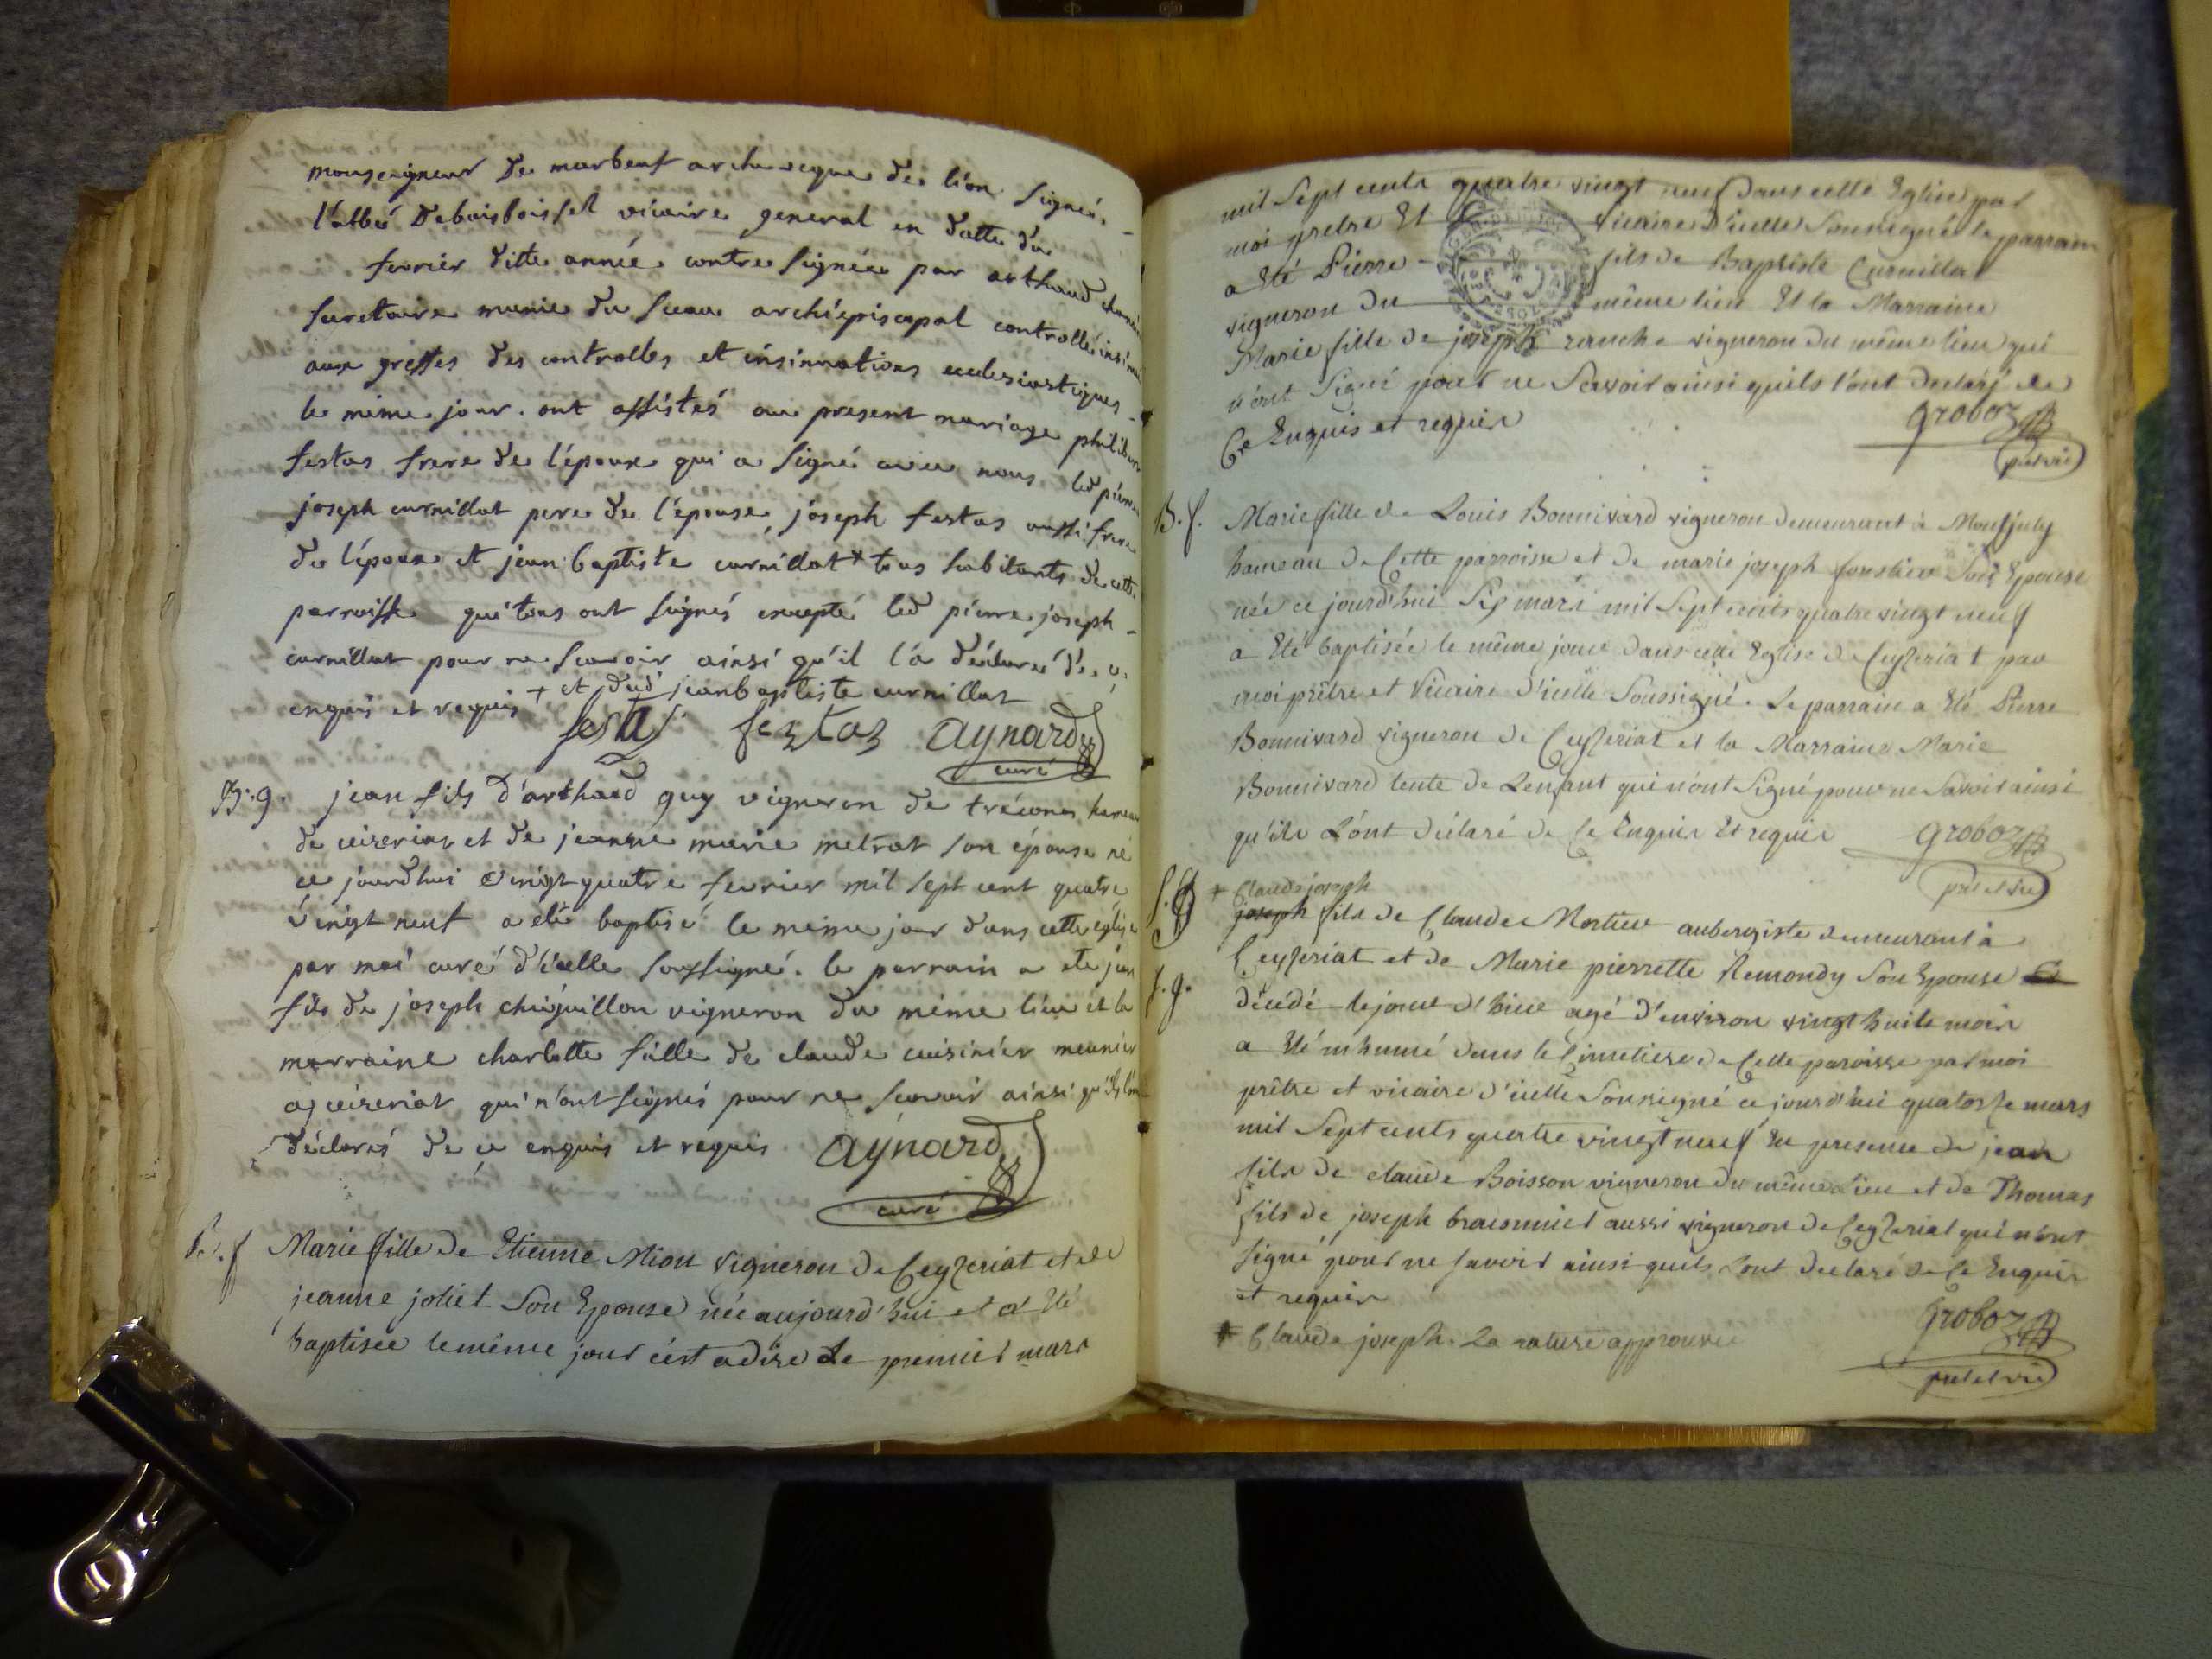 monseigneur de marbeuf archeveque de lion signée
l'abbé Deboisboissel vicaire general en datte du
fevrier ditte année contre signée par arthaud
secretaire munie du sceau archiépiscopal controllé
aux greffes des controlles et insinuations ecclesiastiques
le même jour. ont assistés au present mariage philibert
festas frere de l'époux qui a signé avec nous led pierre
joseph curnillat pere de l'épouse, joseph festas aussi frere
de l'époux et jean baptiste curnillat + tous habitants de cette
parroisse qui tous ont signés excepté led pierre joseph
curnillat pour ne scavoir ainsi qu'il l'a déclaré de ce
enquis et requis + et dud jeanbaptiste curnillat
festas festas aynard
curé
B. g. jean fils d'arthaud guy vigneron de tréconas hameau
de ceizeriat et de jeanne marie metrat son épouse né
ce jourdhui vingt quatre fevrier mil sept cent quatre
vingt neuf a été baptisé le même jour dans cette église
par moi curé d'icelle soussigné. le parrain a ete jean
fils de joseph chiquillon vigneron du même lieu et la
marraine charlotte fille de claude cuisinier meunier
a ceizeriat qui n'ont signés pour ne scavoir ainsi qu'ils l'ont
déclarés de ce enquis et requis aynard
curé
B. f Marie fille de Etienne Mion vigneron de Ceyzeriat et de
jeanne joliet son Epouse née aujourd'hui et a Eté
baptisée le même jour c'est adire Le premier mars
mil Sept cents quatre vingt neuf dans cette Eglise par
moi pretre Et vicaire d'icelle Soussigné le parrain
a Eté Pierre fils de Baptiste Curnillat
vigneron du même lieu Et la Marraine
Marie fille de joseph ranche vigneron du même lieu qui
n'ont Signé pour ne Scavoir ainsi quils l'ont declaré de
Ce Enquis et requis
Groboz
pret vic
B. f. Marie fille de Louis Bonnivard vigneron demeurant à Montjuly
hameau de Cette parroisse et de marie joseph Son Epouse
née ce jourd'hui Six mars mil Sept cents quatre vingt neuf
a Eté baptisée le même jour dans cette Eglise de Ceyzeriat par
moi prêtre et Vicaire d'icelle Soussigné. Le parrain a Eté Pierre
Bonnivard vigneron de Ceyzeriat et la Marraine Marie
Bonnivard tente de Lenfant qui n'ont Signé pour ne Savoir ainsi
qu'ils L'ont déclaré de Ce Enquis Et requis Groboz
pret et vic
+ Claude joseph
joseph fils de Claude Mortier aubergiste demeurant à
Ceyzeriat et de Marie pierrette Remondy Son Epouse
S. g. décédé le jour d'hier agé d'environ vingt huits mois
a Eté inhumé dans le Cimetiere de Cette paroisse par moi
prêtre et vicaire d'icelle Soussigné ce jourd'hui quatorze mars
mil Sept cents quatre vingt neuf En presence de jean
fils de claude Boisson vigneron du même Lieu et de Thomas
fils de joseph braconnier aussi vigneron de Ceyzeriat qui n'ont
signé pour ne savoir ainsi quils L'ont declaré de Ce Enquis
et requis
Groboz
+ Claude joseph. La rature approuvée
pret et vic